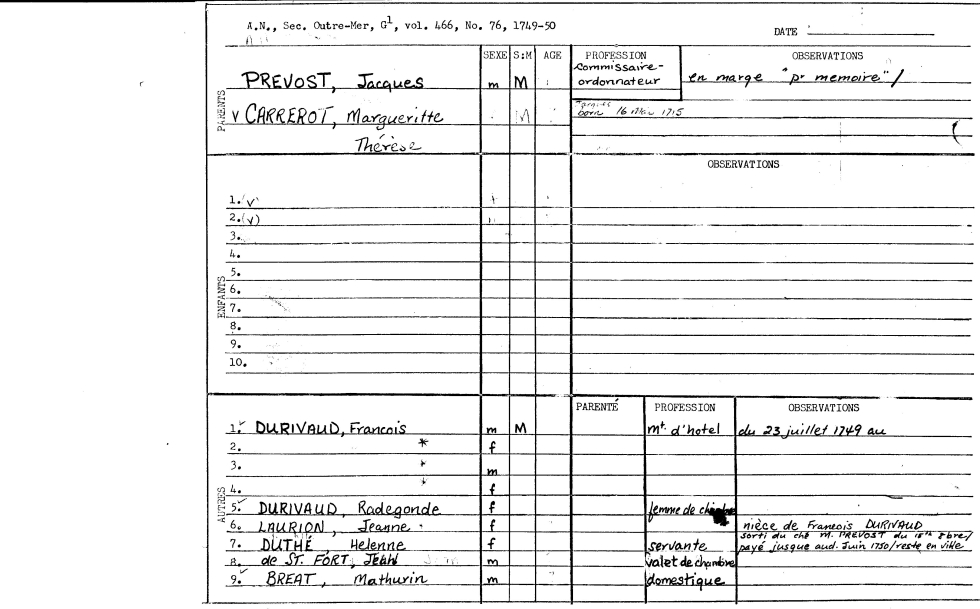 A.N., Sec. Outre-Mer, G1, vol. 466, No. 76, 1749-50
DATE
SEXE S:M AGE PROFESSION OBSERVATIONS
PARENTS
PREVOST, Jacques m M Commissaire-ordonnateur en marge "pr memoire"/
v CARREROT, Margueritte M born 1715
Thérèse
OBSERVATIONS
ENFANTS
1. (v)
2. (v)
3.
4.
5.
6.
7.
8.
9.
10.
PARENTÉ PROFESSION OBSERVATIONS
AUTRES
1. DURIVAUD, Francois m M mt. d'hotel du 23 juillet 1749 au
2. * f
3. * m
4. * f
5. DURIVAUD, Radegonde f femme de
6. LAURION, Jeanne f nièce de Francois DURIVAUD
7. DUTHÉ Helenne f servante sorti du ché M. PREVOST du 15th 8bre/
payé jusque aud. Juin 1750/reste en ville
8. de ST. FORT, Jean m valet de chambre
9. BREAT, Mathurin m domestique